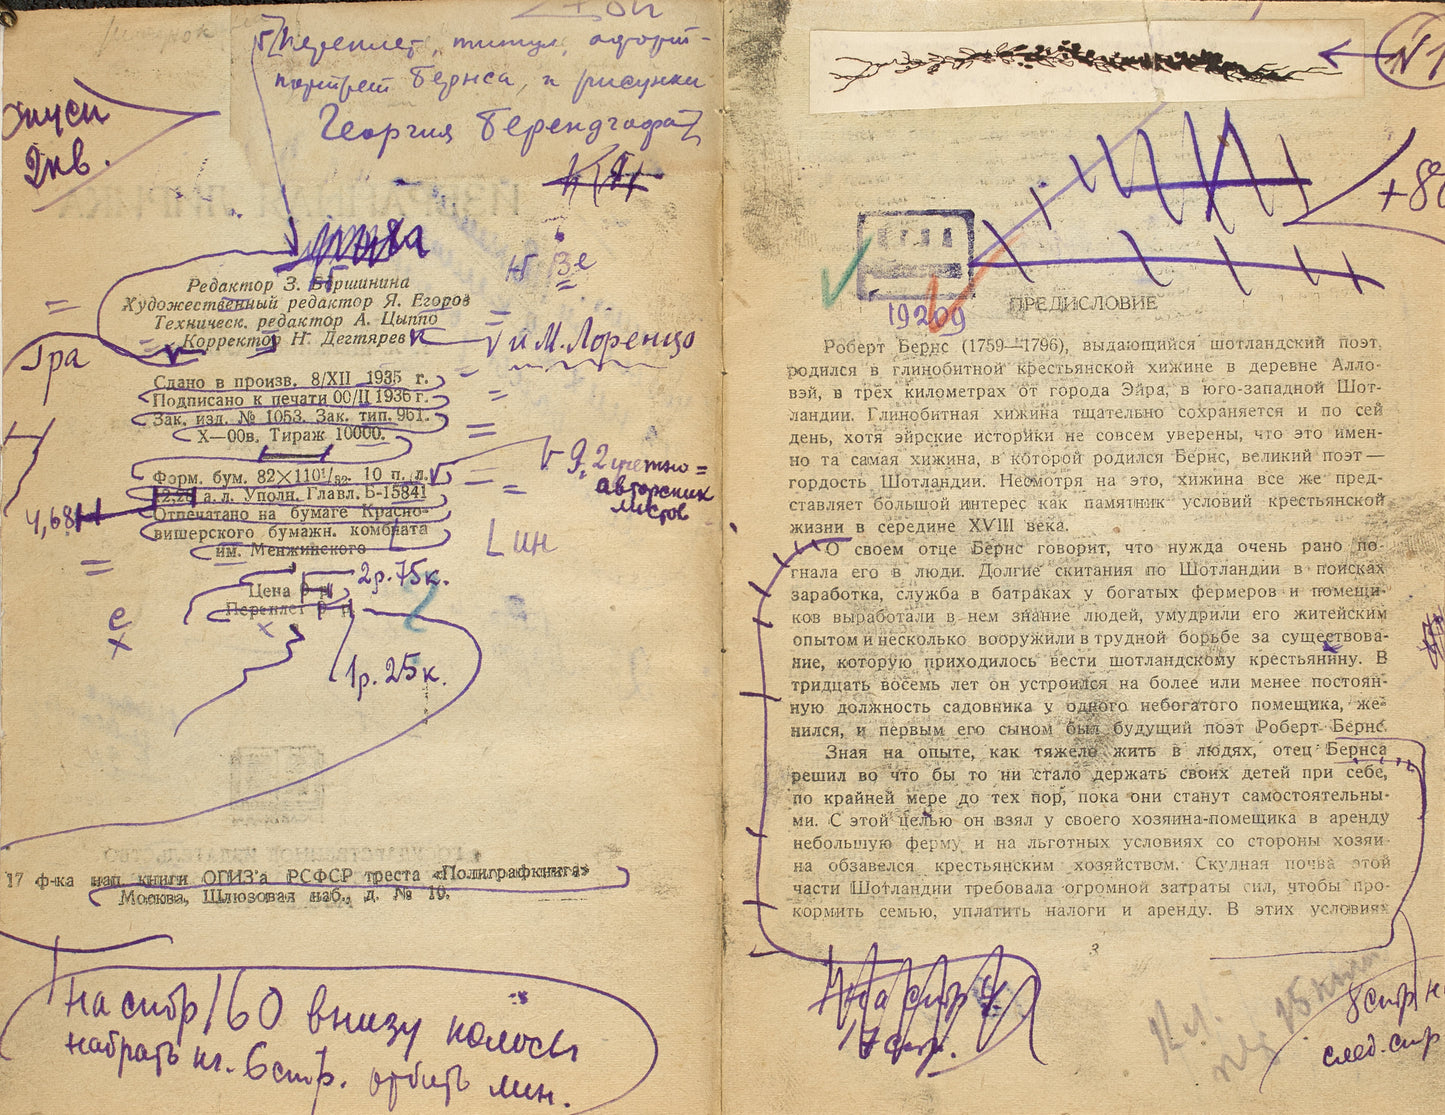 Переплет, титул, афорт-
портрет Бернса, и рисунки
Георгия Берендгофа
спуси
2кв.
Редактор З. Вершинина
Художественный редактор Я. Егоров
Техническ. редактор А. Цыппо
Корректор Н. Дегтярев
и М. Лоренцо
Сдано в произв. 8/XII 1935 г.
Подписано к печати 00/II 1936 г.
Зак. изд. № 1053. Зак. тип. 961.
Х—00в. Тираж 10000.
Форм. бум. 82×110¹/₃₂. 10 п. л.
а. л. Уполн. Главл. Б-15841
Отпечатано на бумаге Красно-
вишерского бумажн. комбината
им. Менжинского
9,2 учетно=
авторских
листов
4,68
Цена
2р. 75к.
Переплет
1р. 25к.
17 ф-ка нац. книги ОГИЗ'а РСФСР треста «Полиграфкнига»
Москва, Шлюзовая наб., д. № 10.
на стр 160 внизу полосы
набрать кг. 6 стр. отбить лин.
№1
19209
ПРЕДИСЛОВИЕ
Роберт Бернс (1759—1796), выдающийся шотландский поэт,
родился в глинобитной крестьянской хижине в деревне Алло-
вэй, в трёх километрах от города Эйра, в юго-западной Шот-
ландии. Глинобитная хижина тщательно сохраняется и по сей
день, хотя эйрские историки не совсем уверены, что это имен-
но та самая хижина, в которой родился Бернс, великий поэт —
гордость Шотландии. Несмотря на это, хижина все же пред-
ставляет большой интерес как памятник условий крестьянской
жизни в середине XVIII века.
О своем отце Бернс говорит, что нужда очень рано по-
гнала его в люди. Долгие скитания по Шотландии в поисках
заработка, служба в батраках у богатых фермеров и помещи-
ков выработали в нем знание людей, умудрили его житейским
опытом и несколько вооружили в трудной борьбе за существова-
ние, которую приходилось вести шотландскому крестьянину. В
тридцать восемь лет он устроился на более или менее постоян-
ную должность садовника у одного небогатого помещика, же-
нился, и первым его сыном был будущий поэт Роберт Бернс.
Зная на опыте, как тяжело жить в людях, отец Бернса
решил во что бы то ни стало держать своих детей при себе,
по крайней мере до тех пор, пока они станут самостоятельны-
ми. С этой целью он взял у своего хозяина-помещика в аренду
небольшую ферму и на льготных условиях со стороны хозяи-
на обзавелся крестьянским хозяйством. Скудная почва этой
части Шотландии требовала огромной затраты сил, чтобы про-
кормить семью, уплатить налоги и аренду. В этих условиях
3
на стр
8 стр на
след. стр